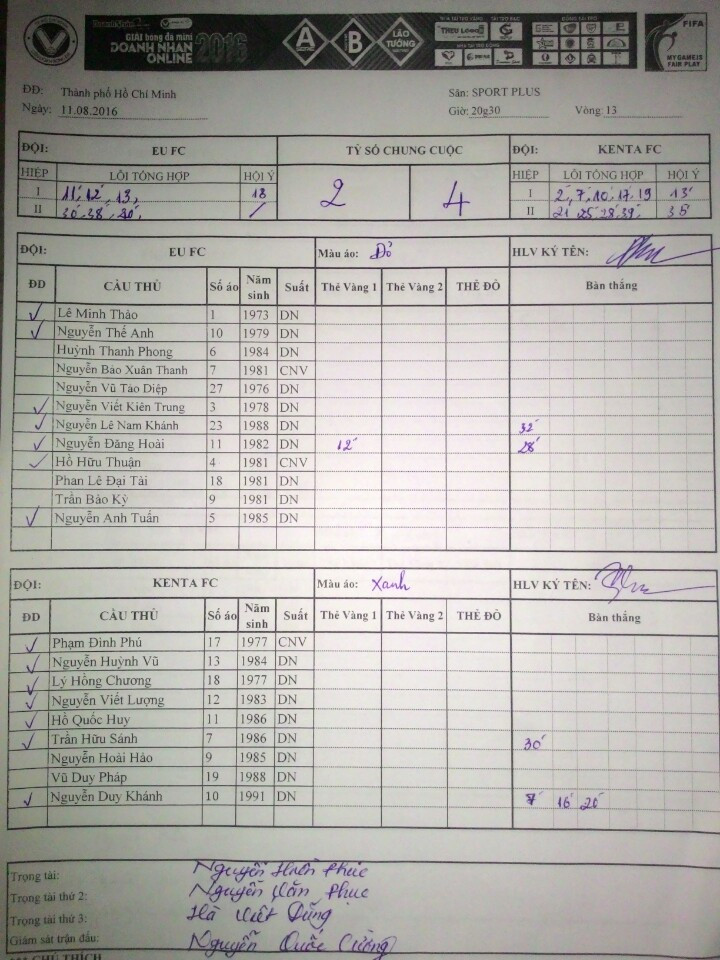 GIẢI bóng đá mini
DOANH NHÂN
ONLINE 2016
A B LÃO TƯỚNG
FIFA
MY GAME IS
FAIR PLAY
ĐĐ: Thành phố Hồ Chí Minh Sân: SPORT PLUS
Ngày: 11.08.2016 Giờ: 20g30 Vòng: 13
ĐỘI: EU FC TỶ SỐ CHUNG CUỘC ĐỘI: KENTA FC
HIỆP LỖI TỔNG HỢP HỘI Ý 2 4 HIỆP LỖI TỔNG HỢP HỘI Ý
I 11' 12' 13, 18 I 2', 7, 10, 17, 19 13'
II 30' 38' II 21 25 28 39' 35'
ĐỘI: EU FC Màu áo: Đỏ HLV KÝ TÊN:
ĐD CẦU THỦ Số áo Năm sinh Suất Thẻ Vàng 1 Thẻ Vàng 2 THẺ ĐỎ Bàn thắng
Lê Minh Thảo 1 1973 DN
Nguyễn Thế Anh 10 1979 DN
Huỳnh Thanh Phong 6 1984 DN
Nguyễn Bảo Xuân Thanh 7 1981 CNV
Nguyễn Vũ Tảo Diệp 27 1976 DN
Nguyễn Viết Kiên Trung 3 1978 DN
Nguyễn Lê Nam Khánh 23 1988 DN 32'
Nguyễn Đăng Hoài 11 1982 DN 12' 28'
Hồ Hữu Thuận 4 1981 CNV
Phan Lê Đại Tài 18 1981 DN
Trần Bảo Kỳ 9 1981 DN
Nguyễn Anh Tuấn 5 1985 DN
ĐỘI: KENTA FC Màu áo: Xanh HLV KÝ TÊN:
ĐD CẦU THỦ Số áo Năm sinh Suất Thẻ Vàng 1 Thẻ Vàng 2 THẺ ĐỎ Bàn thắng
Phạm Đình Phú 17 1977 CNV
Nguyễn Huỳnh Vũ 13 1984 DN
Lý Hồng Chương 18 1977 DN
Nguyễn Viết Lượng 12 1983 DN
Hồ Quốc Huy 11 1986 DN
Trần Hữu Sánh 7 1986 DN 30'
Nguyễn Hoài Hảo 9 1985 DN
Vũ Duy Pháp 19 1988 DN
Nguyễn Duy Khánh 10 1991 DN 7' 16' 20'
Trọng tài: Nguyễn Phúc
Trọng tài thứ 2: Nguyễn Văn Phục
Trọng tài thứ 3: Hà Viết Dũng
Giám sát trận đấu: Nguyễn Quốc Cường
CHÚ THÍCH